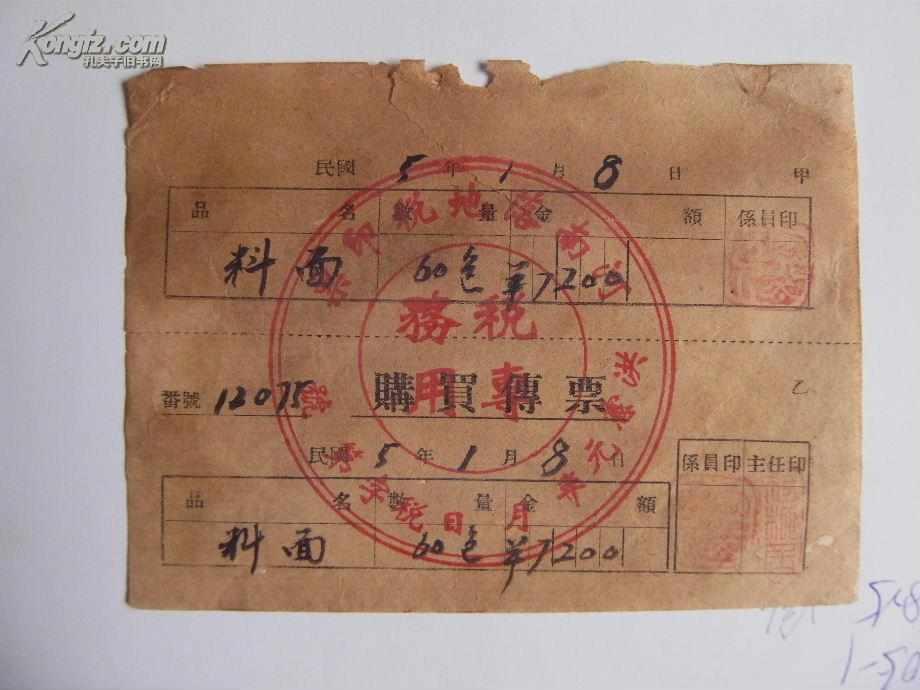 Kongfz.com
孔夫子旧书网
民國 5 年 1 月 8 日 甲
品 名 數 量 金 額 係員印
料面 60包 ¥7200
稅務專用
洪憲元年 月 日
乙
番號 12075 購買傳票
民國 5 年 1 月 8 日
係員印 主任印
品 名 數 量 金 額
料面 60包 ¥7200